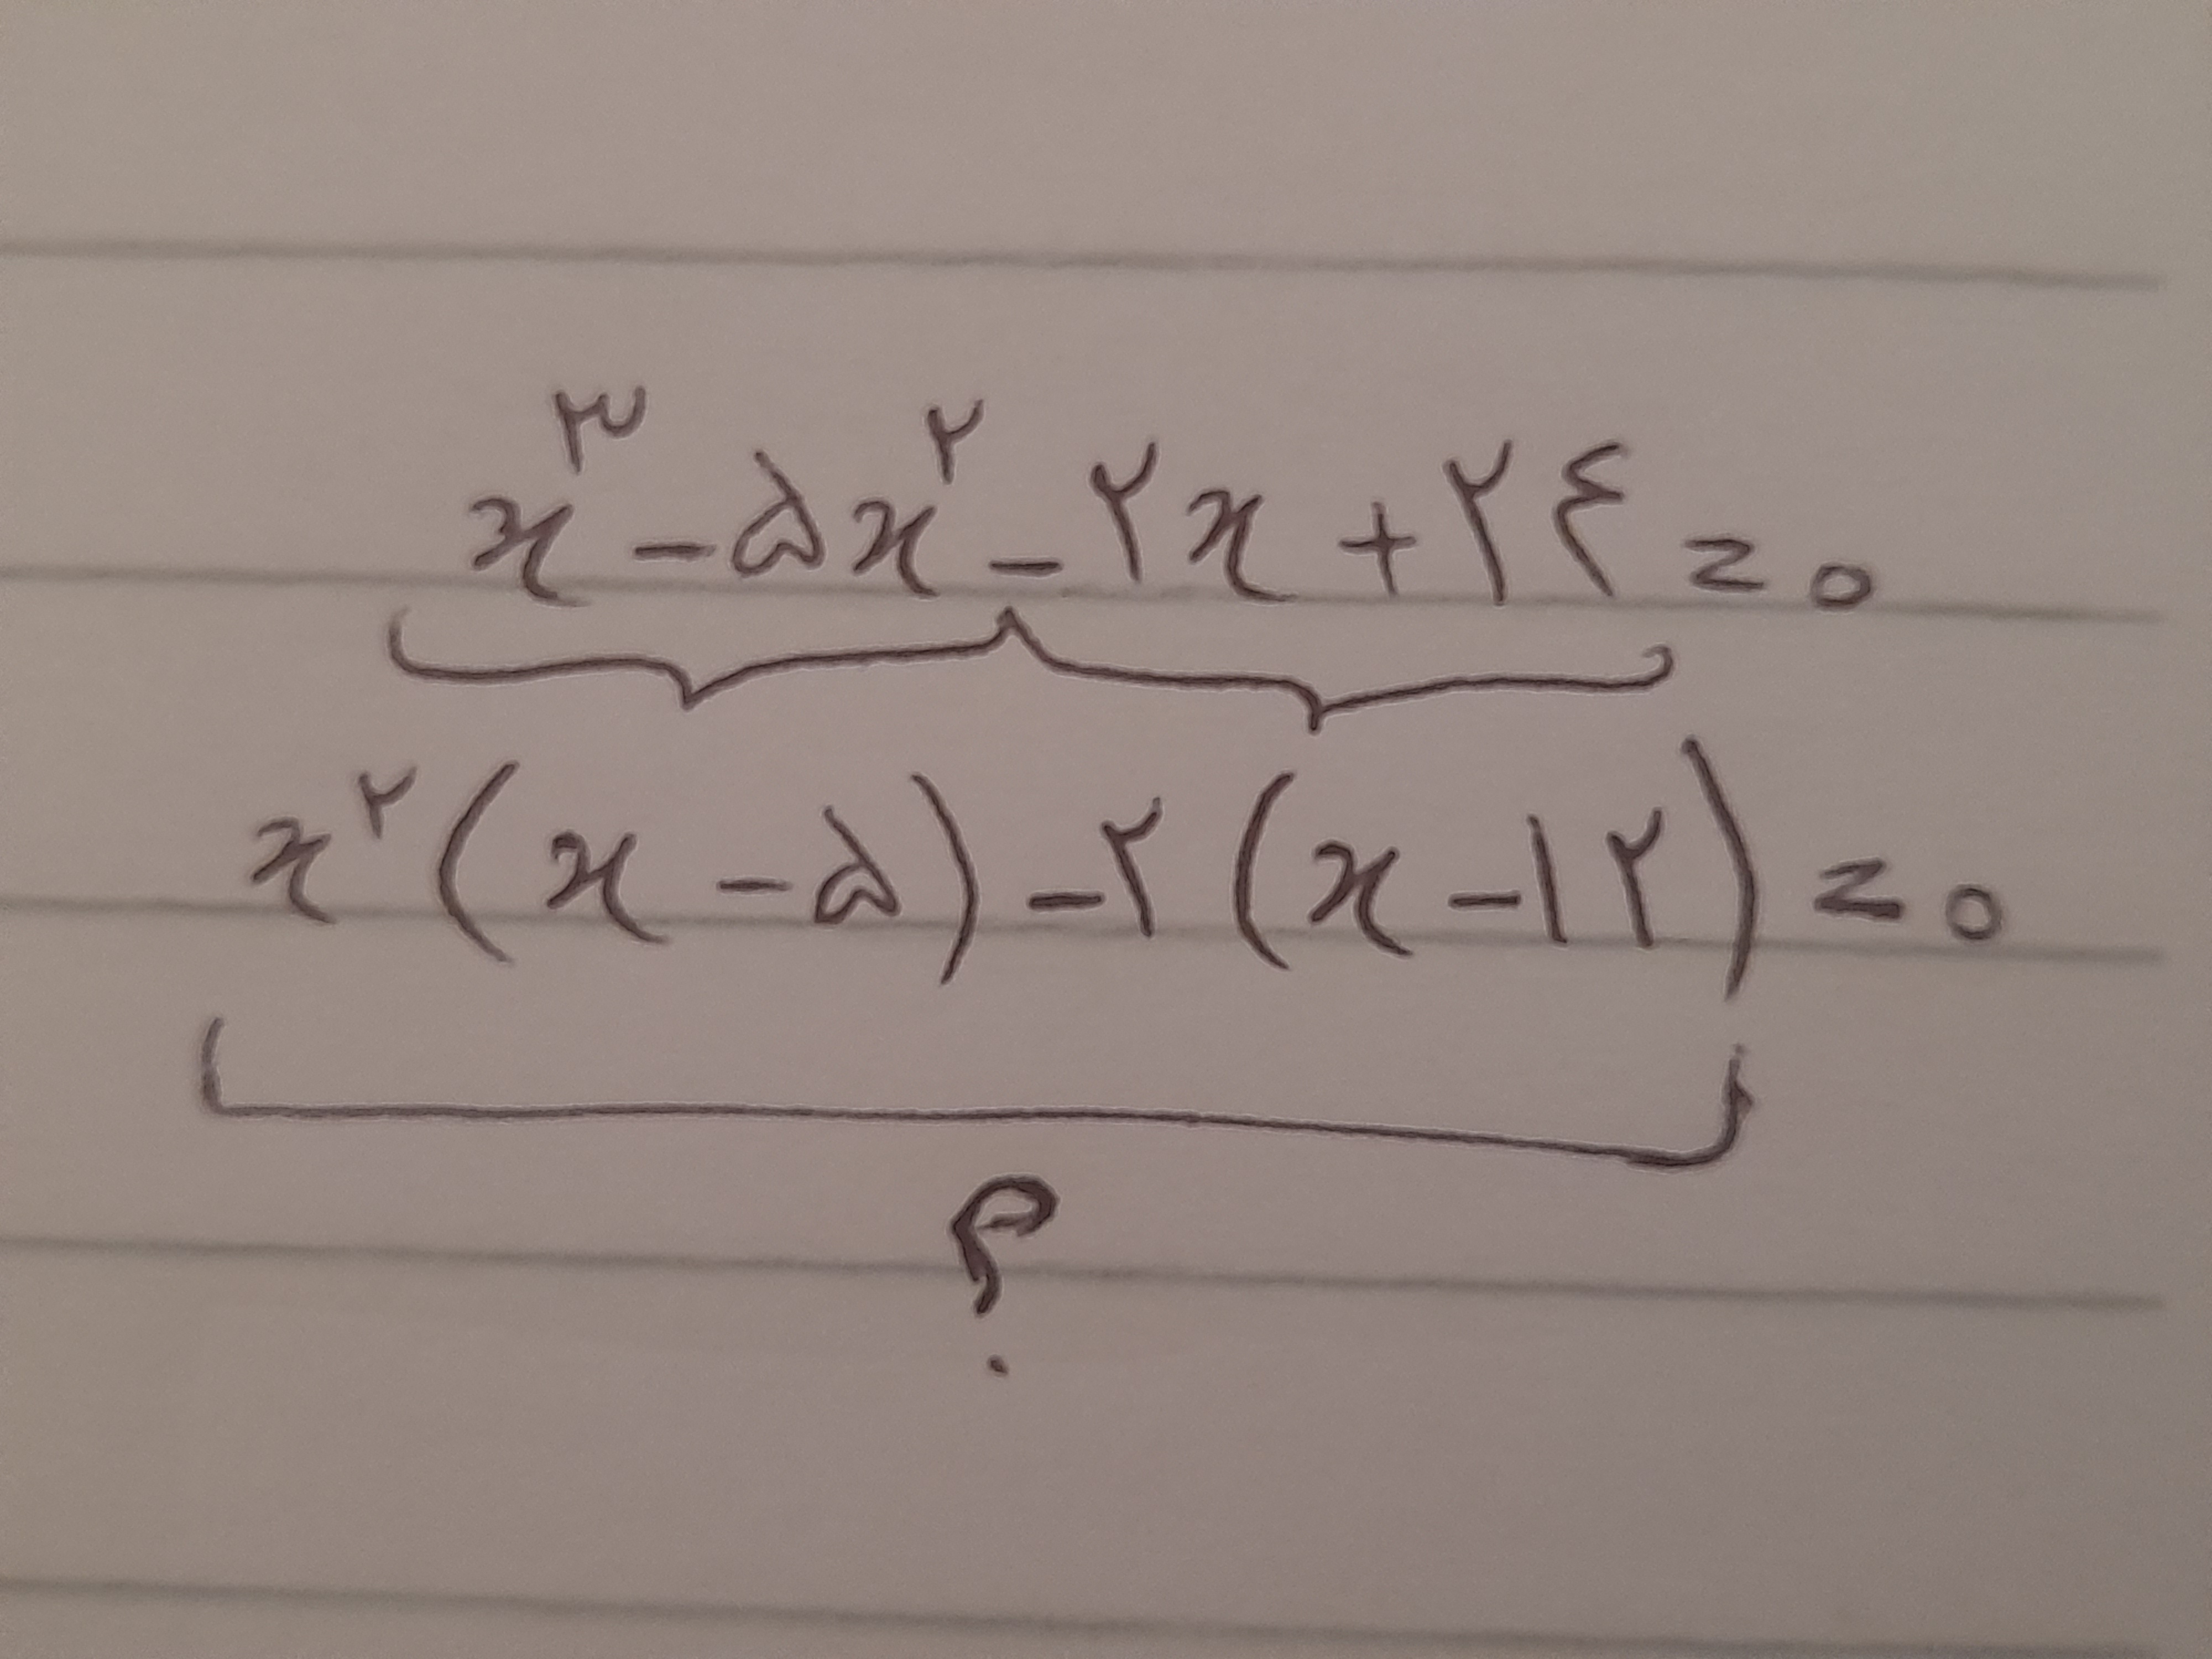 x^۳ - ۵x^۲ - ۲x + ۲۴ = ۰
x^۲ (x - ۵) - ۲ (x - ۱۲) = ۰
؟